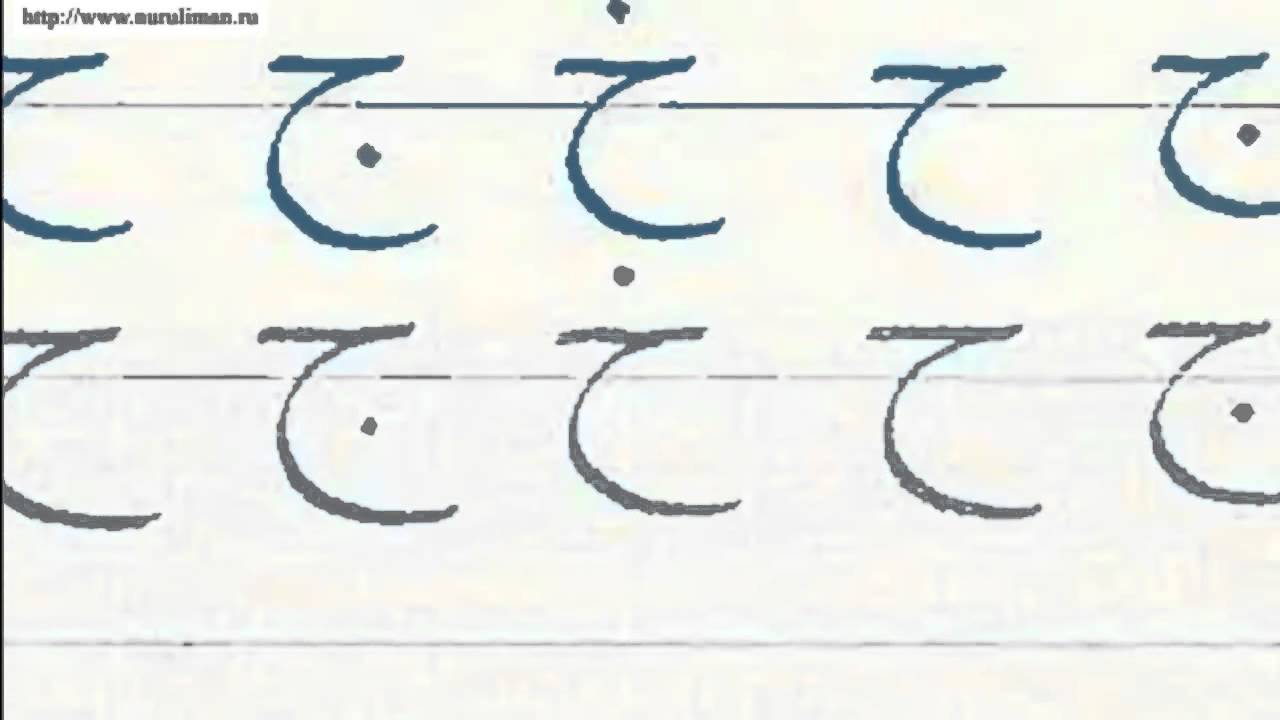 http://www.nuruliman.ru
ج ح خ ج ح
ج ح خ ج ح